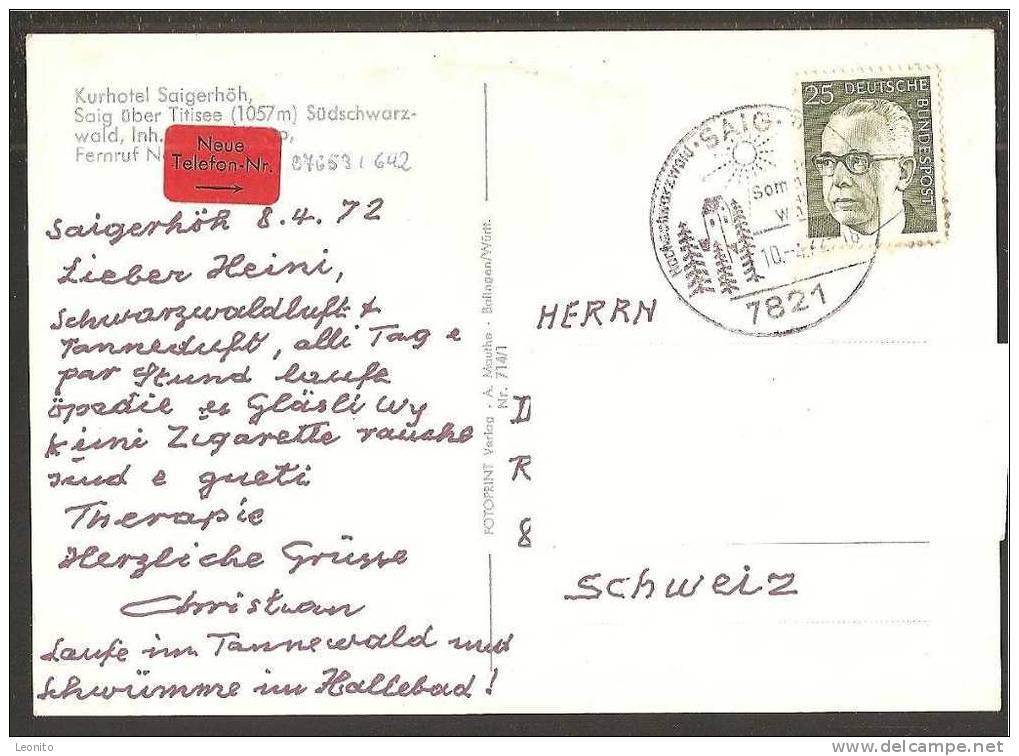 Kurhotel Saigerhöh,
Saig über Titisee (1057m) Südschwarz-
wald, Inh.
Fernruf
Neue
Telefon-Nr.
07653 / 642
Saigerhöh 8.4.72
Lieber Heini,
Schwarzwaldluft +
Tanneduft, alli Tag e
par Stund laufe
öpedie es Gläsli Wy
keini Zigarette rauche
sind e gueti
Therapie
Herzliche Grüsse
Christian
Laufe im Tannewald und
Schwümme im Hallebad!
FOTOPRINT Verlag · A. Mauthe · Balingen/Württ.
Nr. 714/1
Hochschwarzwald · SAIG ·
Som
10.-4.72
7821
25 DEUTSCHE BUNDESPOST
HERRN
D
R
8
Schweiz
Leonito
www.delcampe.net